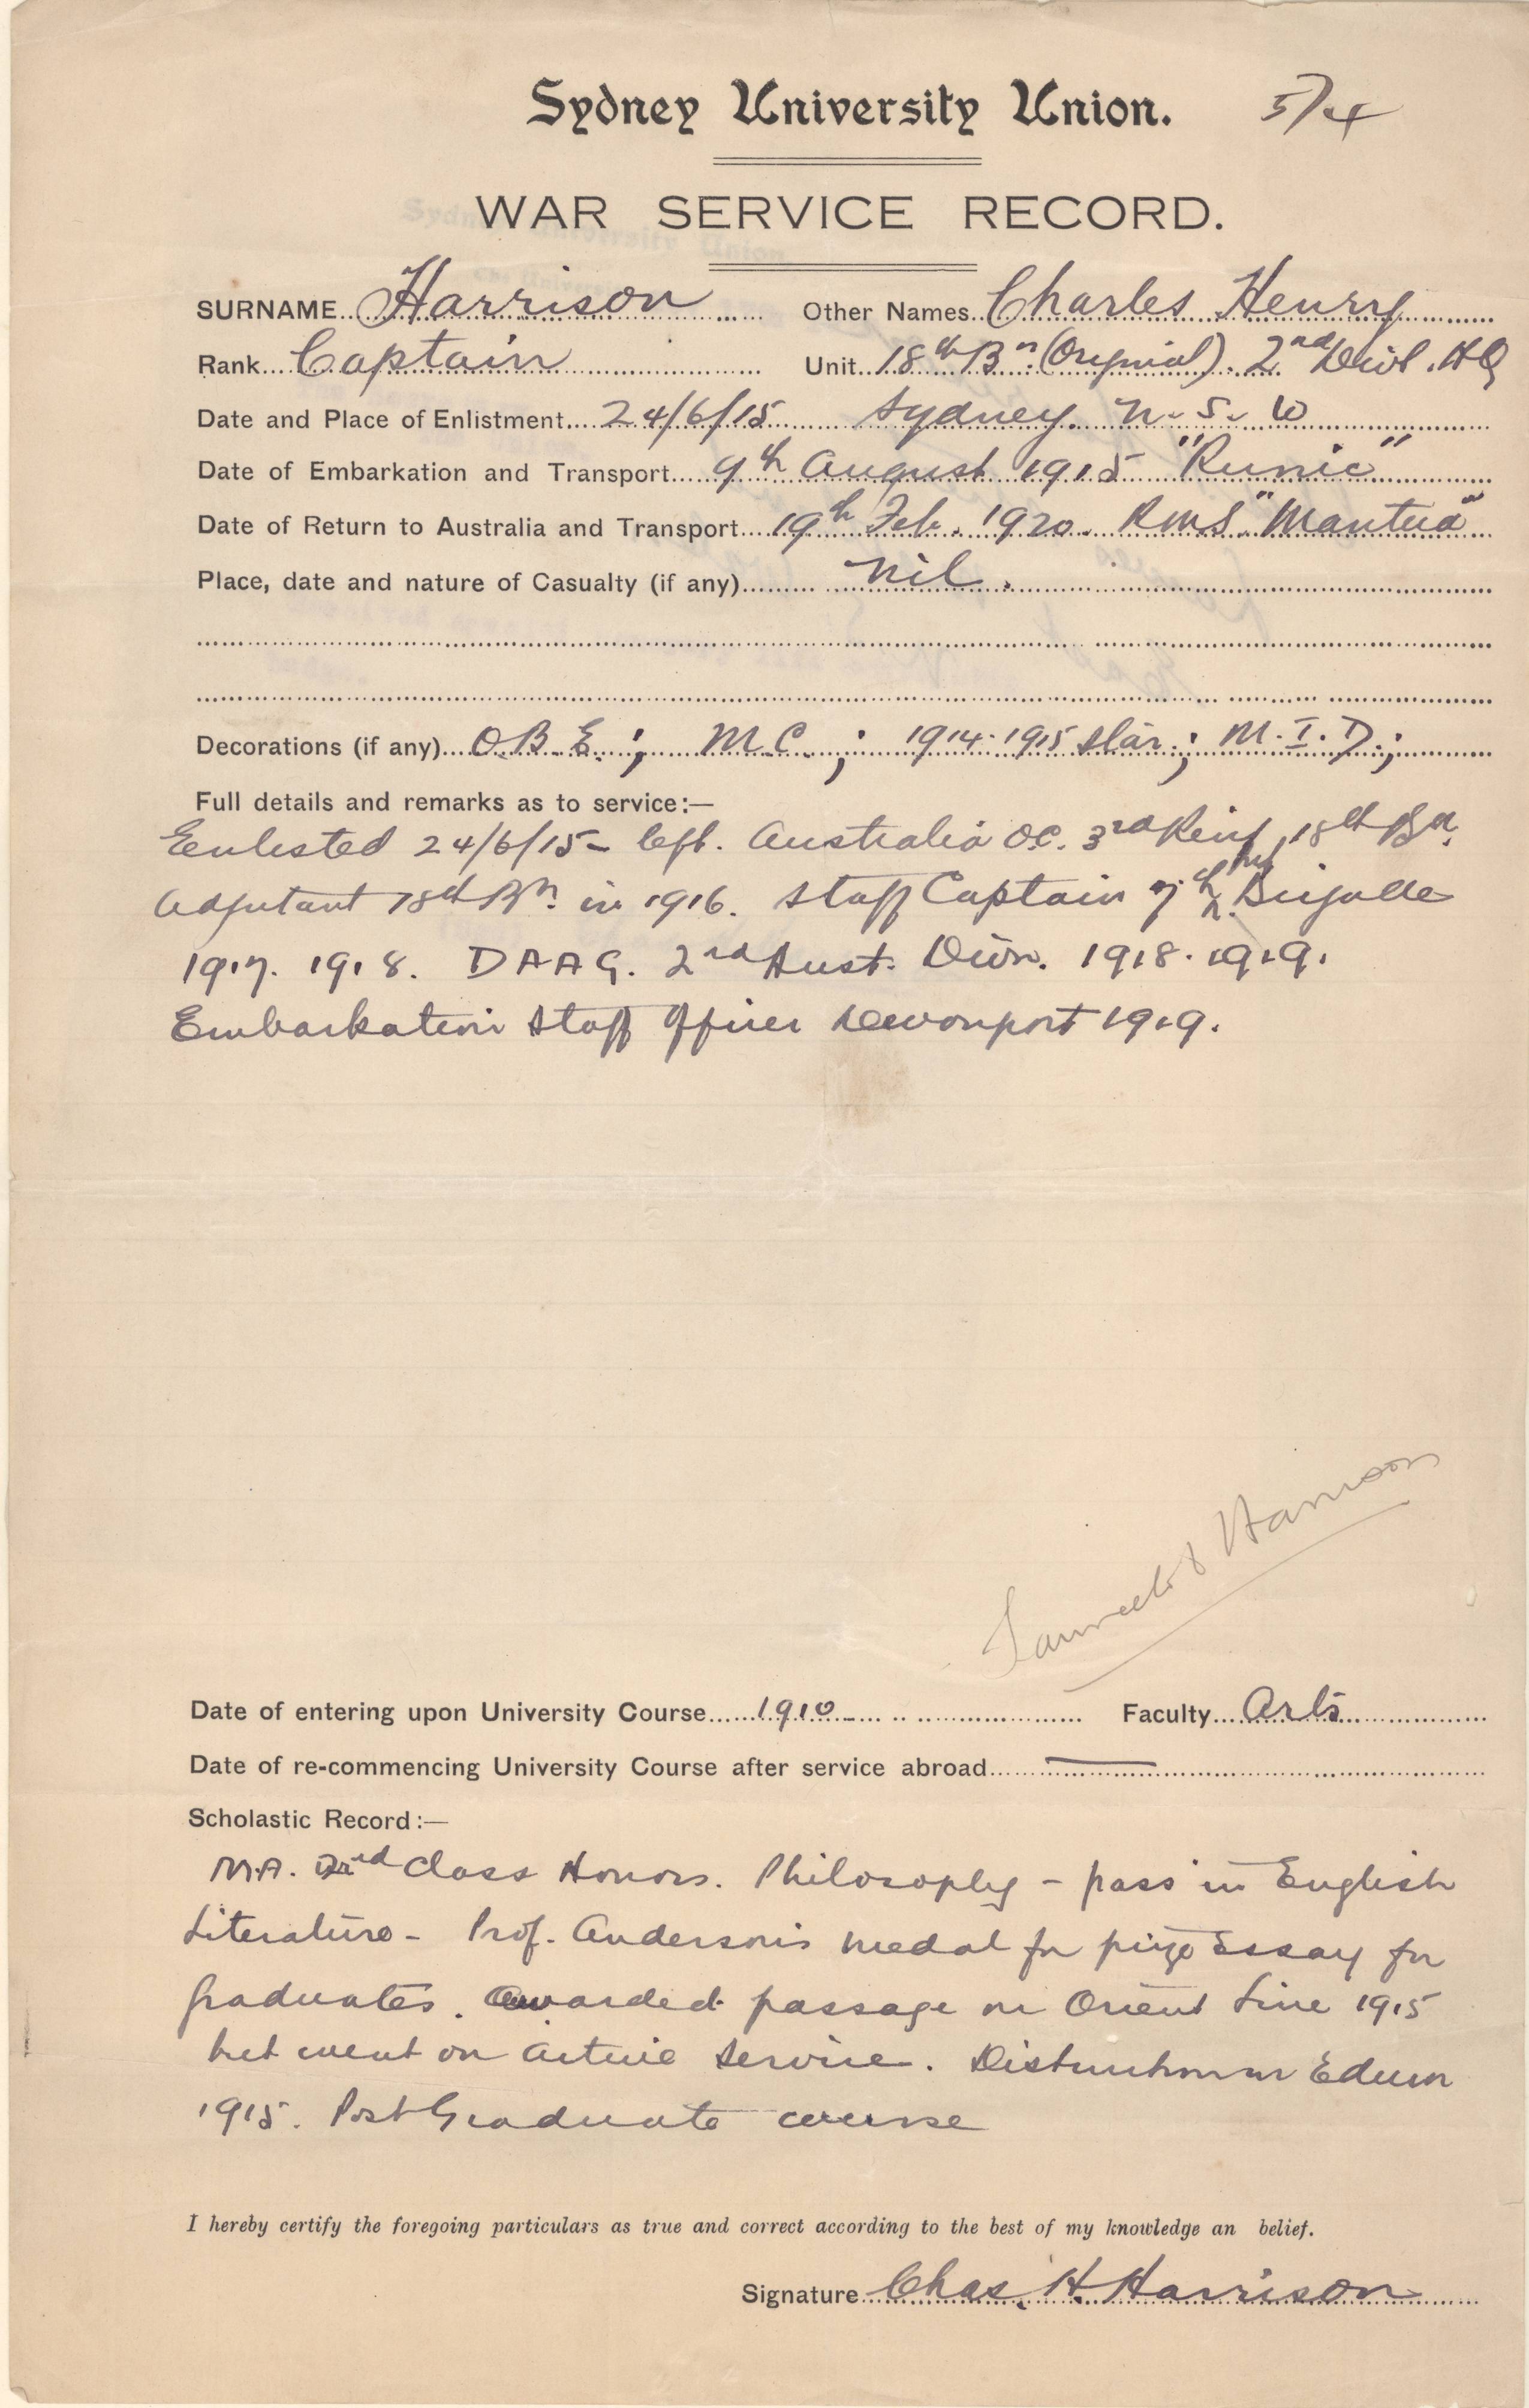 Sydney University Union. 5/4
WAR SERVICE RECORD.
SURNAME Harrison Other Names Charles Henry
Rank Captain Unit 18th Bn. (Original). 2nd Divl. HQ
Date and Place of Enlistment 24/6/15 Sydney. N.S.W
Date of Embarkation and Transport 9th August 1915 "Runic"
Date of Return to Australia and Transport 19th Feb. 1920. RMS "Mantua"
Place, date and nature of Casualty (if any) Nil.
Decorations (if any) O.B.E.; M.C.; 1914-1915 Star; M.I.D.;
Full details and remarks as to service:—
Enlisted 24/6/15 - left Australia O.C. 3rd Reinf 18th Bn.
Adjutant 18th Bn. in 1916. Staff Captain 7th Inf Brigade
1917. 1918. DAAG. 2nd Aust. Divn. 1918. 1919.
Embarkation Staff Officer Devonport 1919.
Harrison
Date of entering upon University Course 1910 Faculty Arts
Date of re-commencing University Course after service abroad —
Scholastic Record:—
M.A. 2nd Class Honors. Philosophy - pass in English
Literature - Prof. Anderson's medal for prize Essay for
Graduates. Awarded passage on Orient Line 1915
but went on active service. Distinction in Educn
1915. Post Graduate course
I hereby certify the foregoing particulars as true and correct according to the best of my knowledge an belief.
Signature Chas. H. Harrison